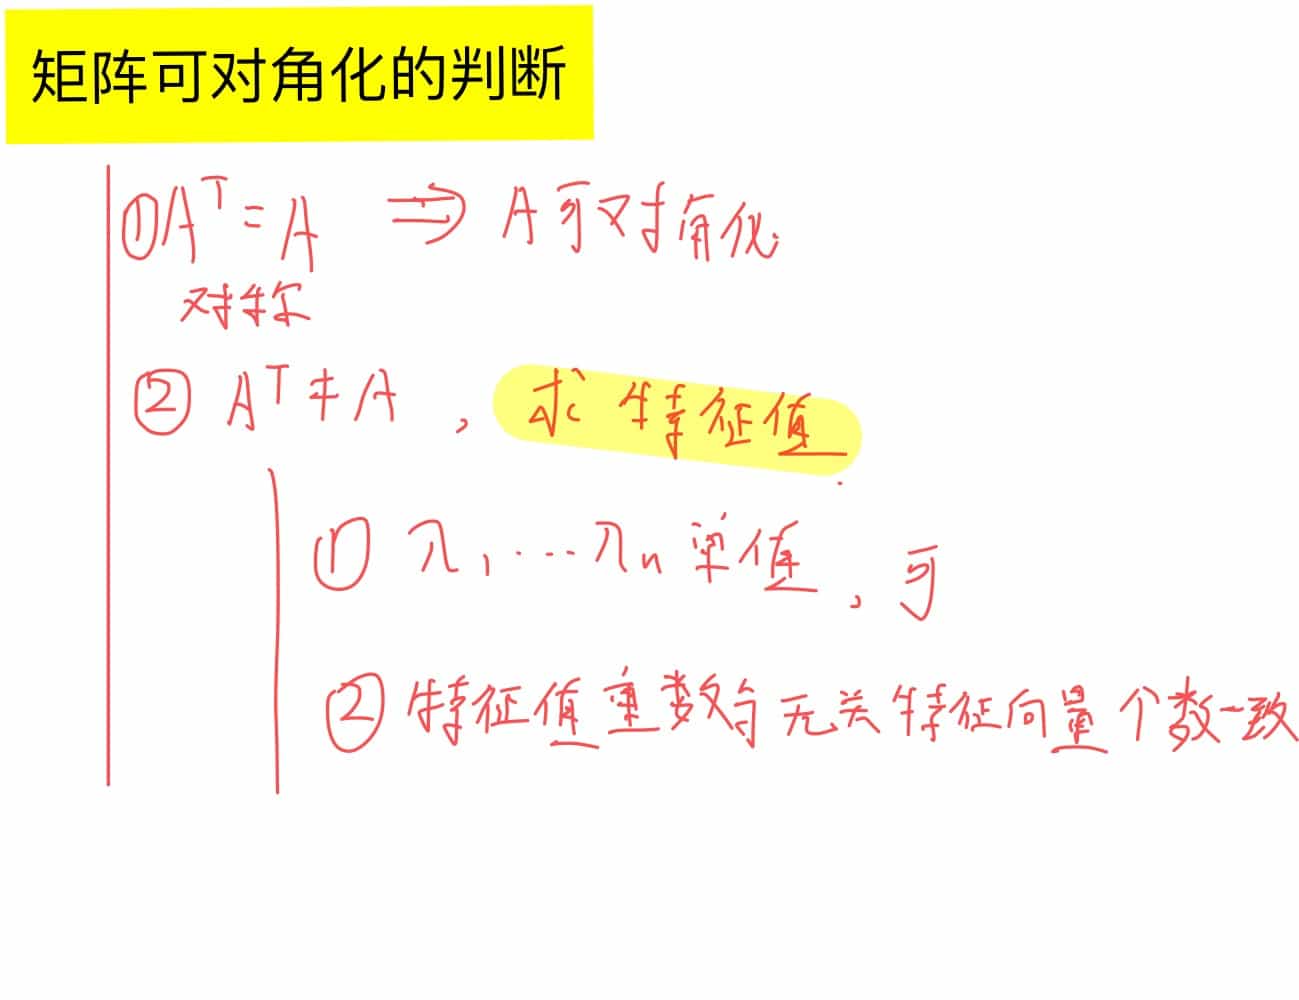 矩阵可对角化的判断
①Aᵀ=A ⇒ A可对角化
对称
② Aᵀ≠A , 求特征值
① λ₁, ⋯ λₙ 单值, 可
② 特征值重数与无关特征向量个数一致